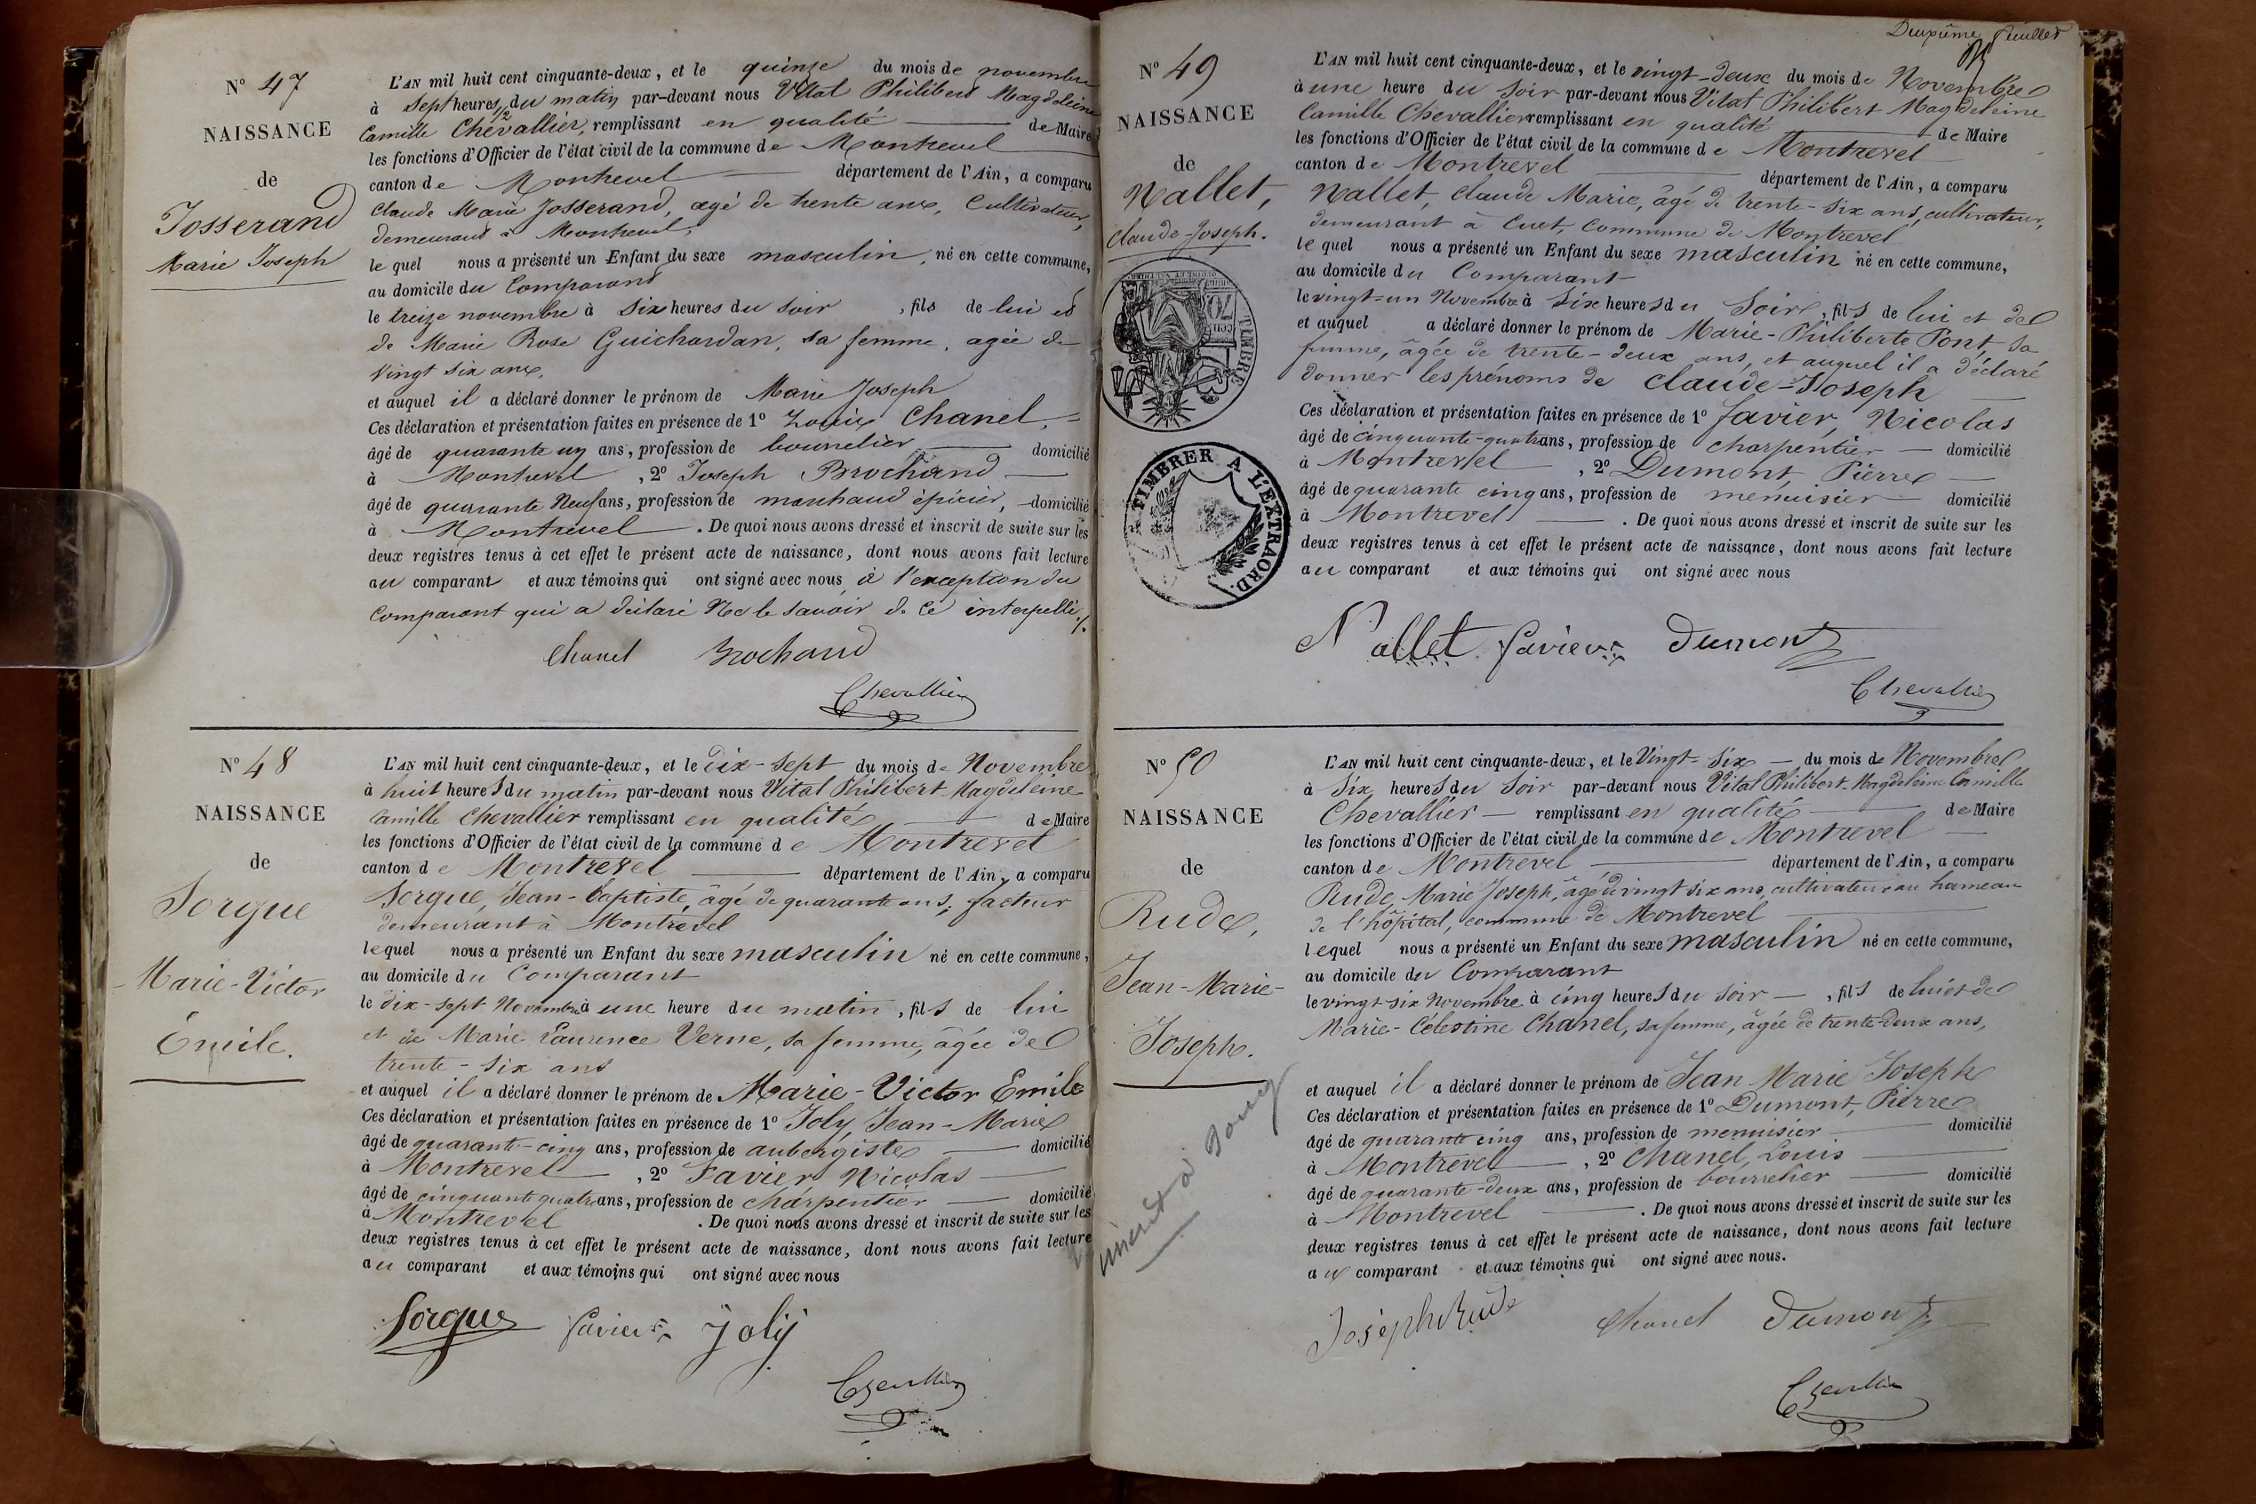 N° 47
NAISSANCE
de
Josserand
Marie Joseph
L'AN mil huit cent cinquante-deux, et le quinze du mois de novembre
à sept heures 1/2 du matin par-devant nous Vital Philibert Magdeleine
Camille Chevallier, remplissant en qualité de Maire
les fonctions d'Officier de l'état civil de la commune de Montrevel
canton de Montrevel département de l'Ain, a comparu
Claude Marie Josserand, agé de trente ans, Cultivateur,
demeurant à Montrevel,
lequel nous a présenté un Enfant du sexe masculin, né en cette commune,
au domicile du Comparant
le treize novembre à Six heures du soir, fils de lui et
de Marie Rose Guichardan, sa femme, agée de
vingt six ans,
et auquel il a déclaré donner le prénom de Marie Joseph
Ces déclaration et présentation faites en présence de 1° Louis Chanel,
âgé de quarante un ans, profession de bourrelier domicilié
à Montrevel, 2° Joseph Brochand
âgé de quarante Neuf ans, profession de marchand épicier, domicilié
à Montrevel. De quoi nous avons dressé et inscrit de suite sur les
deux registres tenus à cet effet le présent acte de naissance, dont nous avons fait lecture
au comparant et aux témoins qui ont signé avec nous à l'exception du
Comparant qui a déclaré Ne le savoir de ce interpellé ./.
Chanel Brochand
Chevallier
N° 48
NAISSANCE
de
Sorgue
Marie-Victor
Émile.
L'AN mil huit cent cinquante-deux, et le Dix-sept du mois de Novembre
à huit heures du matin par-devant nous Vital Philibert Magdeleine
Camille Chevallier remplissant en qualité de Maire
les fonctions d'Officier de l'état civil de la commune de Montrevel
canton de Montrevel département de l'Ain, a comparu
Sorgue, Jean-Baptiste, âgé de quarante ans, facteur
demeurant à Montrevel
lequel nous a présenté un Enfant du sexe masculin né en cette commune,
au domicile du Comparant
le dix-sept Novembre à une heure du matin, fils de lui
et de Marie Laurence Verne, sa femme, âgée de
trente-six ans
et auquel il a déclaré donner le prénom de Marie-Victor Emile
Ces déclaration et présentation faites en présence de 1° Joly, Jean-Marie
âgé de quarante-cinq ans, profession de aubergiste domicilié
à Montrevel, 2° Favier Nicolas
âgé de cinquante quatre ans, profession de charpentier domicilié
à Montrevel. De quoi nous avons dressé et inscrit de suite sur les
deux registres tenus à cet effet le présent acte de naissance, dont nous avons fait lecture
au comparant et aux témoins qui ont signé avec nous
Sorgue Favier Joly
Chevallier
Deuxième feuillet
N° 49
NAISSANCE
de
Nallet,
Claude-Joseph.
TIMBRE
70
TIMBRER A L'EXTRAORD.
L'AN mil huit cent cinquante-deux, et le vingt-deux du mois de Novembre
à une heure du Soir par-devant nous Vital Philibert Magdeleine
Camille Chevallier remplissant en qualité de Maire
les fonctions d'Officier de l'état civil de la commune de Montrevel
canton de Montrevel département de l'Ain, a comparu
Nallet, Claude Marie, âgé de trente-six ans, cultivateur,
demeurant à Cuet, Commune de Montrevel
lequel nous a présenté un Enfant du sexe masculin né en cette commune,
au domicile du Comparant
le vingt-un Novembre à six heures du Soir, fils de lui et de
et auquel a déclaré donner le prénom de Marie-Philiberte Pont, sa
femme, âgée de trente-deux ans, et auquel il a déclaré
donner les prénoms de Claude-Joseph
Ces déclaration et présentation faites en présence de 1° Favier, Nicolas
âgé de cinquante-quatre ans, profession de charpentier domicilié
à Montrevel, 2° Dumont, Pierre
âgé de quarante cinq ans, profession de menuisier domicilié
à Montrevel. De quoi nous avons dressé et inscrit de suite sur les
deux registres tenus à cet effet le présent acte de naissance, dont nous avons fait lecture
au comparant et aux témoins qui ont signé avec nous
Nallet Favier Dumont
Chevallier
N° 50
NAISSANCE
de
Rude,
Jean-Marie-
Joseph.
L'AN mil huit cent cinquante-deux, et le Vingt-Six du mois de Novembre
à Six heures du Soir par-devant nous Vital Philibert Magdeleine Camille
Chevallier remplissant en qualité de Maire
les fonctions d'Officier de l'état civil de la commune de Montrevel
canton de Montrevel département de l'Ain, a comparu
Rude, Marie Joseph, âgé de vingt six ans, cultivateur au hameau
de l'hôpital, commune de Montrevel
lequel nous a présenté un Enfant du sexe masculin né en cette commune,
au domicile du Comparant
le vingt-six Novembre à cinq heures du soir, fils de lui et de
Marie-Célestine Chanel, sa femme, âgée de trente-deux ans,
et auquel il a déclaré donner le prénom de Jean Marie Joseph
Ces déclaration et présentation faites en présence de 1° Dumont, Pierre
âgé de quarante cinq ans, profession de menuisier domicilié
à Montrevel, 2° Chanel, Louis
âgé de quarante-deux ans, profession de bourrelier domicilié
à Montrevel. De quoi nous avons dressé et inscrit de suite sur les
deux registres tenus à cet effet le présent acte de naissance, dont nous avons fait lecture
au comparant et aux témoins qui ont signé avec nous.
Joseph Rude Chanel Dumont
Chevallier